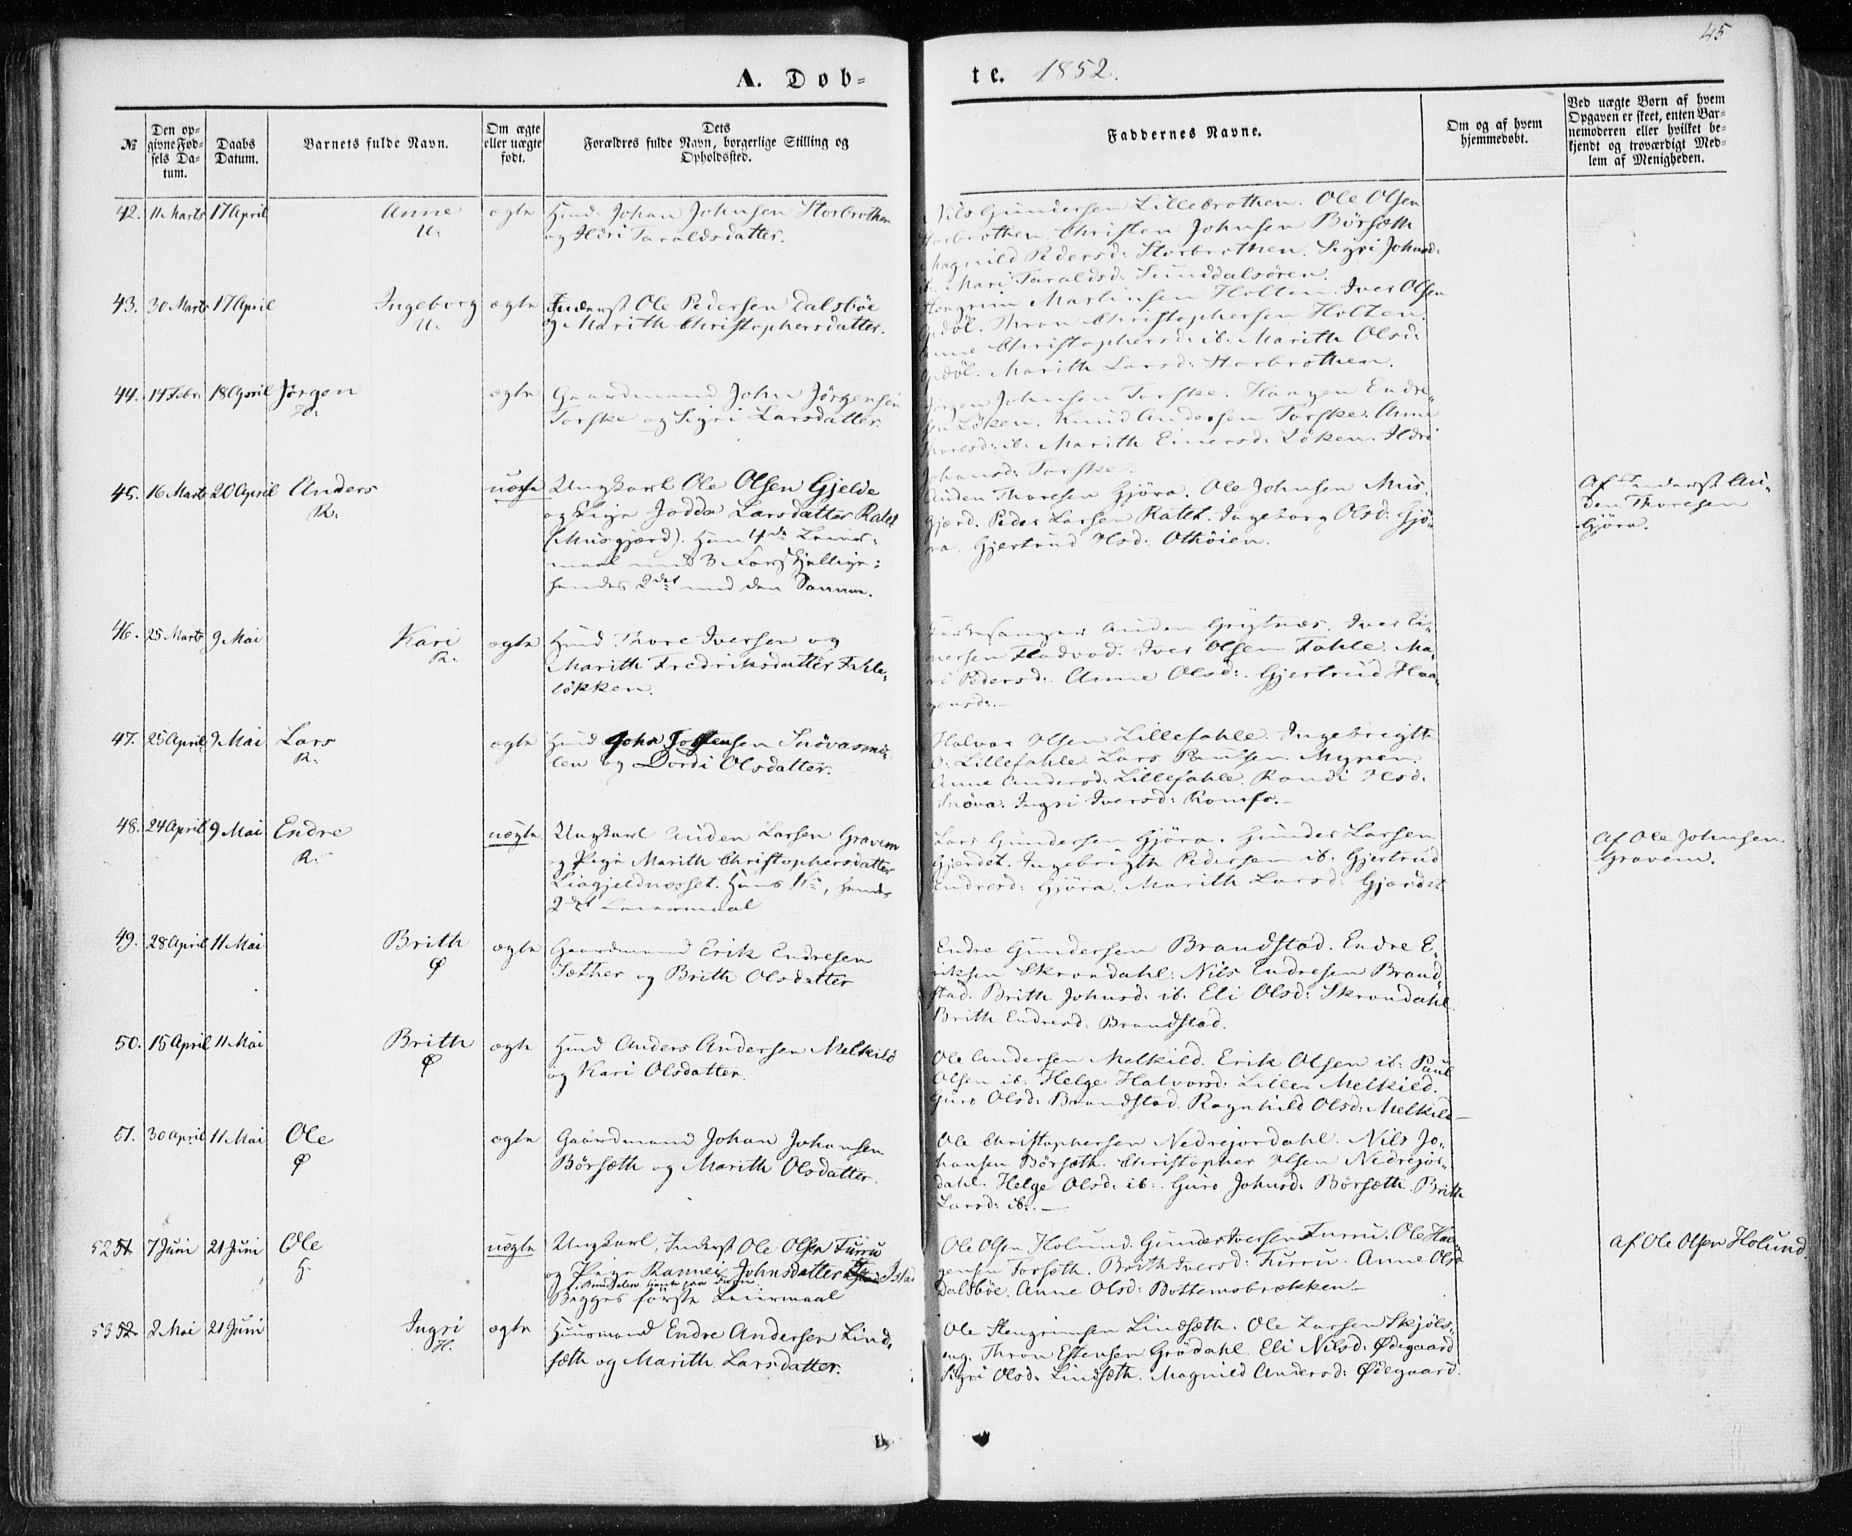 45
A. Døb-
te. 1852.
№
Den op-
givne Fød-
sels Da-
tum.
Daabs
Datum.
Barnets fulde Navn.
Om ægte
eller uægte
født.
Dets
Forældres fulde Navn, borgerlige Stilling og
Opholdssted.
Faddernes Navne.
Om og af hvem
hjemmedøbt.
Ved uægte Børn af hvem
Opgaven er skeet, enten Bar-
nemoderen eller hvilket be-
kjendt og troværdigt Med-
lem af Menigheden.
42. 11 Marts 17 April Anne ægte Huusd. Johan Johnsen Storbrothen
U.
og Ildri Taraldsdatter.
Nils Gundersen Lillebrothen. Ole Olsen
Storbrothen. Christen Johnsen Børsæth
Magnild Pedersd: Storbrothen. Sigri Johnsd:
ib. Mari Taraldsd: Sunddalsøren.
43. 30 Marts 17 April Ingeborg ægte Inderst Ole Pedersen Dalsbøe
U.
og Marith Christophersdatter.
Stengrim Martinsen Holten. Iver Olsen
Opdøl. Thron Christophersen Holten.
Anne Christophersd: ib. Marith Olsd:
Opdøl. Marith Larsd: Storbrothen.
44. 14 Febr. 18 April Jørgen ægte Gaardmand John Jørgensen
Torske og Sigri Larsdatter.
Jørgen Johnsen Torske. Haagen Endre-
sen Løken. Knud Andersen Torske. Anne
Thoresd: ib. Marith Einersd: Løken. Ildri
Johansd: Torske.
45. 16 Marts 20 April Anders uægte Ungkarl Ole Olsen Gjelde
R.
og Pige Jodda Larsdatter Ratet
(Musgjærd). Hans 4de Leier-
maal med 3 Forskjellige;
hendes 2det med den Samme.
Auden Thoresen Gjøra. Ole Johnsen Mus-
gjærd. Peder Larsen Ratet. Ingeborg Olsd: Gjø-
ra. Gjertrud Olsd: Othøien.
Af Inderst Au-
den Thoresen
Gjøra.
46. 25 Marts 9 Mai Kari ægte Huusd Thore Iversen og
R.
Marith Fredriksdatter Fahle-
løkken.
Kirkesanger Auden Grytnæs. Iver Ei-
nersen Fladvad. Iver Olsen Fahle. Ma-
ri Pedersd: Anne Olsd: Gjertrud Haa-
gensd:
47. 25 April 9 Mai Lars ægte Huusd John Jostensen Snøvasme-
R.
len og Dordi Olsdatter.
Halvor Olsen Lillefahle. Ingebrigt
O. Lillefahle. Lars Paulsen Myren.
Anne Andersd: Lillefahle. Randi Olsd:
Snøva. Ingri Iversd: Romfo.
48. 24 April 9 Mai Endre uægte Ungkarl Auden Larsen Gravem
R.
og Pige Marith Christophersdatter
Liagjeldnæsset. Hans 1ste, hendes
2det Leiermaal
Lars Gundersen Gjøra. Gunder Larsen
Gjerdet. Ingebrigt Pedersen ib. Gjertrud
Endresd: Gjøra. Marith Larsd: Gjerdet
Af Ole Johnsen
Gravem.
49. 28 April 11 Mai Brith ægte Gaardmand Erik Endresen
Ø
Sæther og Brith Olsdatter
Endre Gundersen Brandstad. Endre E-
riksen Skrondahl. Nils Endresen Brand-
stad. Brith Johnsd: ib. Eli Olsd: Skrondahl
Brith Endresd: Brandstad.
50. 15 April 11 Mai Brith ægte Huusd Anders Andersen Melkild
Ø
og Kari Olsdatter
Ole Andersen Melkild. Erik Olsen ib. Paul
Olsen ib. Helge Halvorsd: Lille Melkild.
Guro Olsd: Brandstad. Ragnhild Olsd: Melkild
51. 30 April 11 Mai Ole ægte Gaardmand Johan Johansen
Ø
Børsæth og Marith Olsdatter.
Ole Christophersen Nedrejordahl. Nils Jo-
hansen Børsæth. Christopher Olsen Nedrejør-
dahl. Helge Olsd: ib. Guro Johnsd: Børsæth. Brith
Larsd: ib.
52 51 7 Juni 21 Juni Ole uægte Ungkarl, Inderst Ole Olsen Furru
H.
og Pige Rannei Johnsdatter
Begges første Leiermaal
Ole Olsen Holund. Gunder Iversen Furru. Ole Haa-
gensen Forsæth. Brith Iversd: Furru. Anne Olsd
Dalsbøe. Anne Olsd: Bottemsbrækken.
Af Ole Olsen Holund.
53 52 2 Mai 21 Juni Ingri ægte Huusmand Endre Andersen Lind-
H.
sæth og Marith Larsdatter.
Ole Stengrimsen Lindsæth. Ole Larsen Skjøls-
eng. Thron Estensen Grødahl. Eli Nilsd: Ødegaard
Sigri Olsd: Lindsæth. Magnild Andersd: Ødegaard.